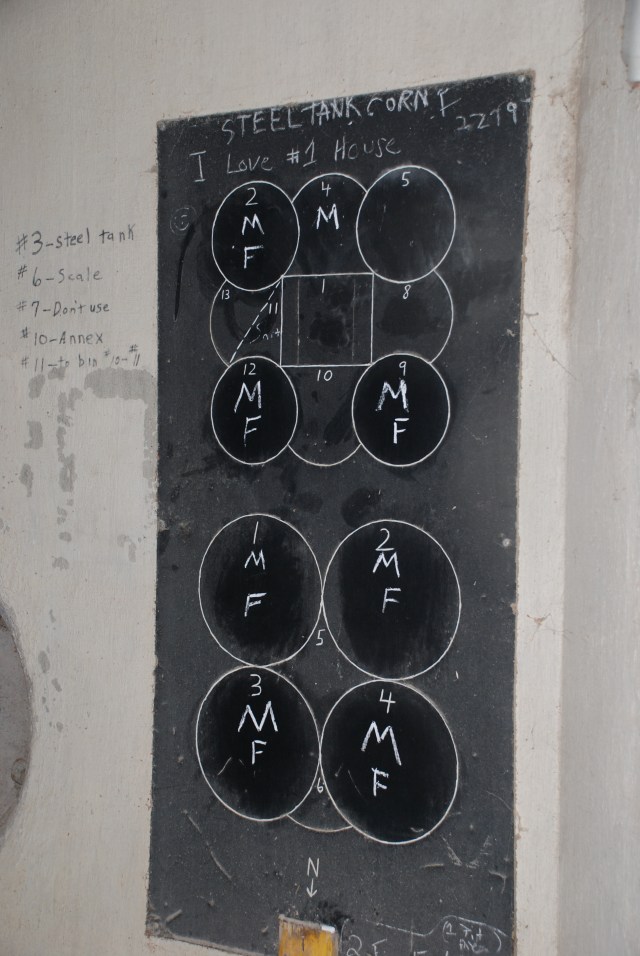 STEEL TANK CORN F
2279
I LOVE #1 HOUSE
2 4 5
M M
F
13 11 1 8
12 10 9
M M
F F
1 2
M M
F F
5
3 4
M M
F F
6
N
#3-steel tank
#6-Scale
#7-Don't use
#10-Annex
#11-to bin